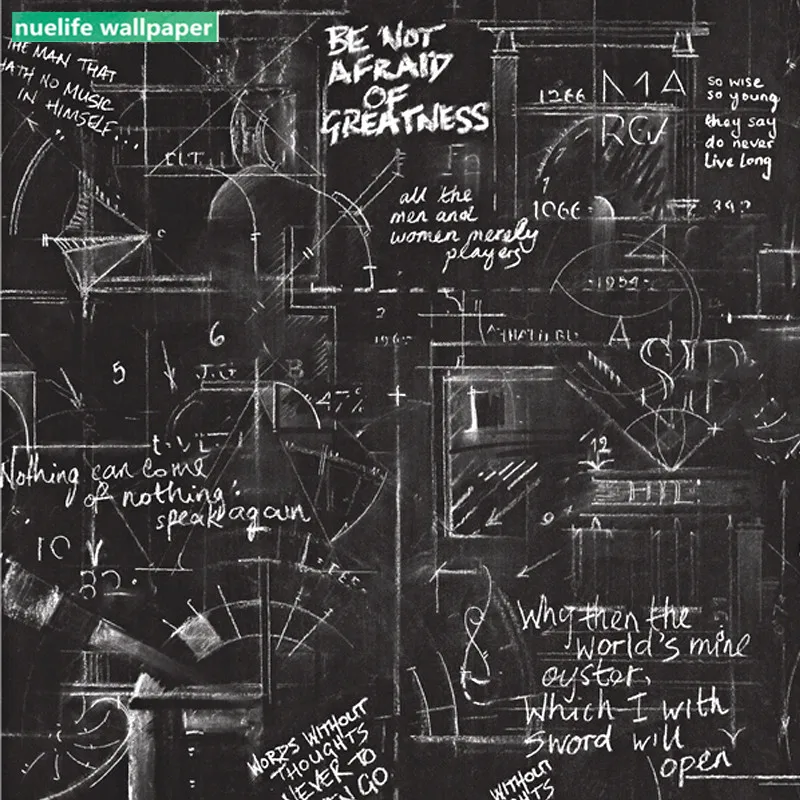 nuelife wallpaper
THE MAN THAT
HATH NO MUSIC
IN HIMSELF...
BE NOT
AFRAID
OF
GREATNESS
so wise
so young
they say
do never
live long
1266
1066
392
all the
men and
women merely
players
1954
6
5
J.G
B
47%
A
12
Nothing can come
of nothing:
speak again
10
32
Why then the
world's mine
oyster,
Which I with
sword will
open
WORDS WITHOUT
THOUGHTS
NEVER TO
GO
WITHOUT